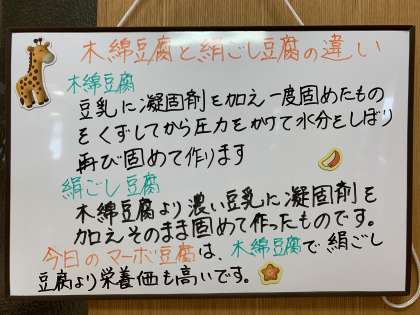 木綿豆腐と絹ごし豆腐の違い
木綿豆腐
豆乳に凝固剤を加え一度固めたもの
をくずしてから圧力をかけて水分をしぼり
再び固めて作ります
絹ごし豆腐
木綿豆腐より濃い豆乳に凝固剤を
加えそのまま固めて作ったものです。
今日のマーボ豆腐は、木綿豆腐で絹ごし
豆腐より栄養価も高いです。